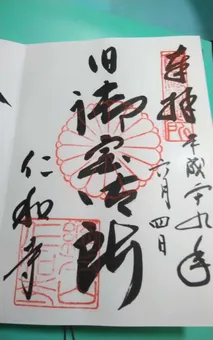 奉拝
平成廿九年
六月四日
旧御室御所
仁和寺